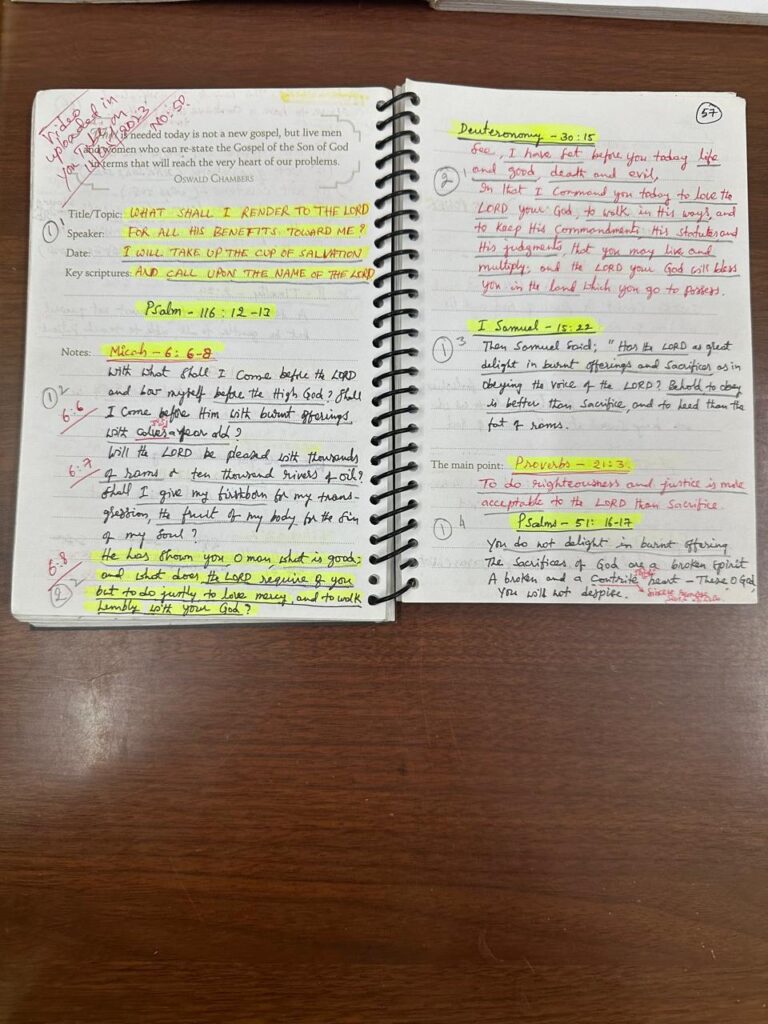 Video
uploaded in
YOU TUBE on
NO: 50
What is needed today is not a new gospel, but live men
and women who can re-state the Gospel of the Son of God
in terms that will reach the very heart of our problems.
OSWALD CHAMBERS
1 1
Title/Topic: WHAT SHALL I RENDER TO THE LORD
Speaker: FOR ALL HIS BENEFITS TOWARD ME?
Date: I WILL TAKE UP THE CUP OF SALVATION
Key scriptures: AND CALL UPON THE NAME OF THE LORD
Psalm - 116 : 12-13
Notes: Micah - 6: 6-8
1 2
With what shall I come before the LORD
and bow myself before the High God? Shall
6:6 I come before Him with burnt offerings
with calves a year old?
Will the LORD be pleased with thousands
6:7 of rams & ten thousand rivers of oil?
Shall I give my firstborn for my trans-
gression, the fruit of my body for the Sin
of my Soul?
6:8 He has shown you O man, what is good;
and what does the LORD require of you
2 2 but to do justly, to love mercy, and to walk
humbly with your God?
57
Deuteronomy - 30:15
See, I have set before you today life
2 1 and good, death and evil,
In that I Command you today to love the
LORD your God, to walk in His ways, and
to keep His Commandments, His statutes and
His judgments, that you may live and
multiply; and the LORD your God will bless
you in the land which you go to possess.
I Samuel - 15:22
1 3 Then Samuel Said; "Has the LORD as great
delight in burnt offerings and Sacrifices as in
obeying the voice of the LORD? Behold to obey
is better than Sacrifice, and to heed than the
fat of rams.
The main point: Proverbs - 21:3
To do righteousness and justice is more
acceptable to the LORD than Sacrifice.
1 4 Psalms - 51: 16-17
You do not delight in burnt offering
The Sacrifices of God are a broken Spirit
A broken and a Contrite heart - These O God,
You will not despise.